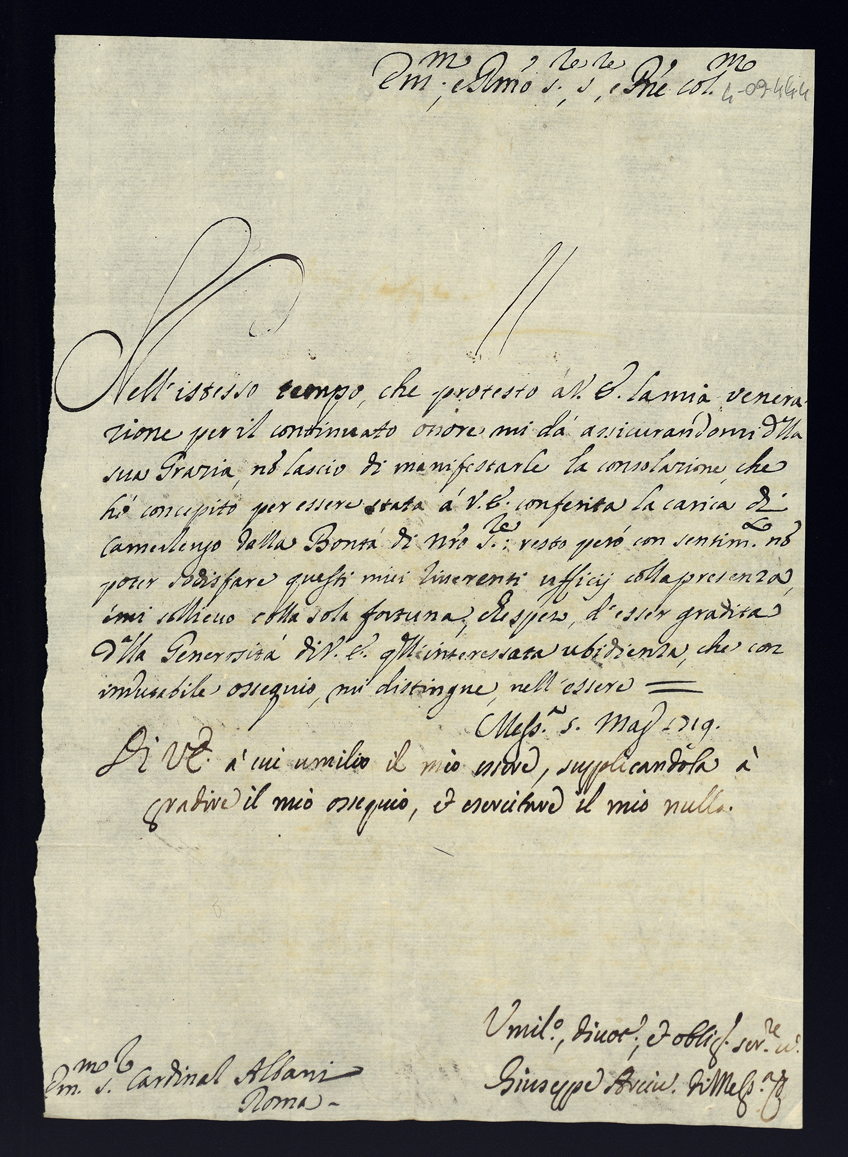 Em.mo, e Rmo s.re, s.re, e Pne col.mo 4-09-444
Nell'istesso tempo, che protesto á V. E. la mia venera-
zione per il continuato onore mi dá assicurandomi d'lla
sua Grazia, nõ lascio di manifestarle la consolazione, che
hó concepito per essere stata á V. E. conferita la carica di
Camerlengo dalla Bontá di nr̃o S.re: resto peró con sentim.to nõ
poter sodisfare questi miei riverenti ufficij colla presenza,
é mi sollievo colla sola fortuna, che spero, d'esser gradita
d'lla Generositá di V. E. q'lla interessata ubidienza, che con
indicibile ossequio, mi distingue, nell'essere =
Mess.a 5. Mag.o 1719.
Di V.E. á cui umilio il mio essere, supplicandola à
gradire il mio ossequio, et esercitare il mio nulla.
Umil.o, divot.o, et oblig.o ser.re v.o
Giuseppe Arciv. di Mess.a
Em.mo s.r Cardinal Albani
Roma -